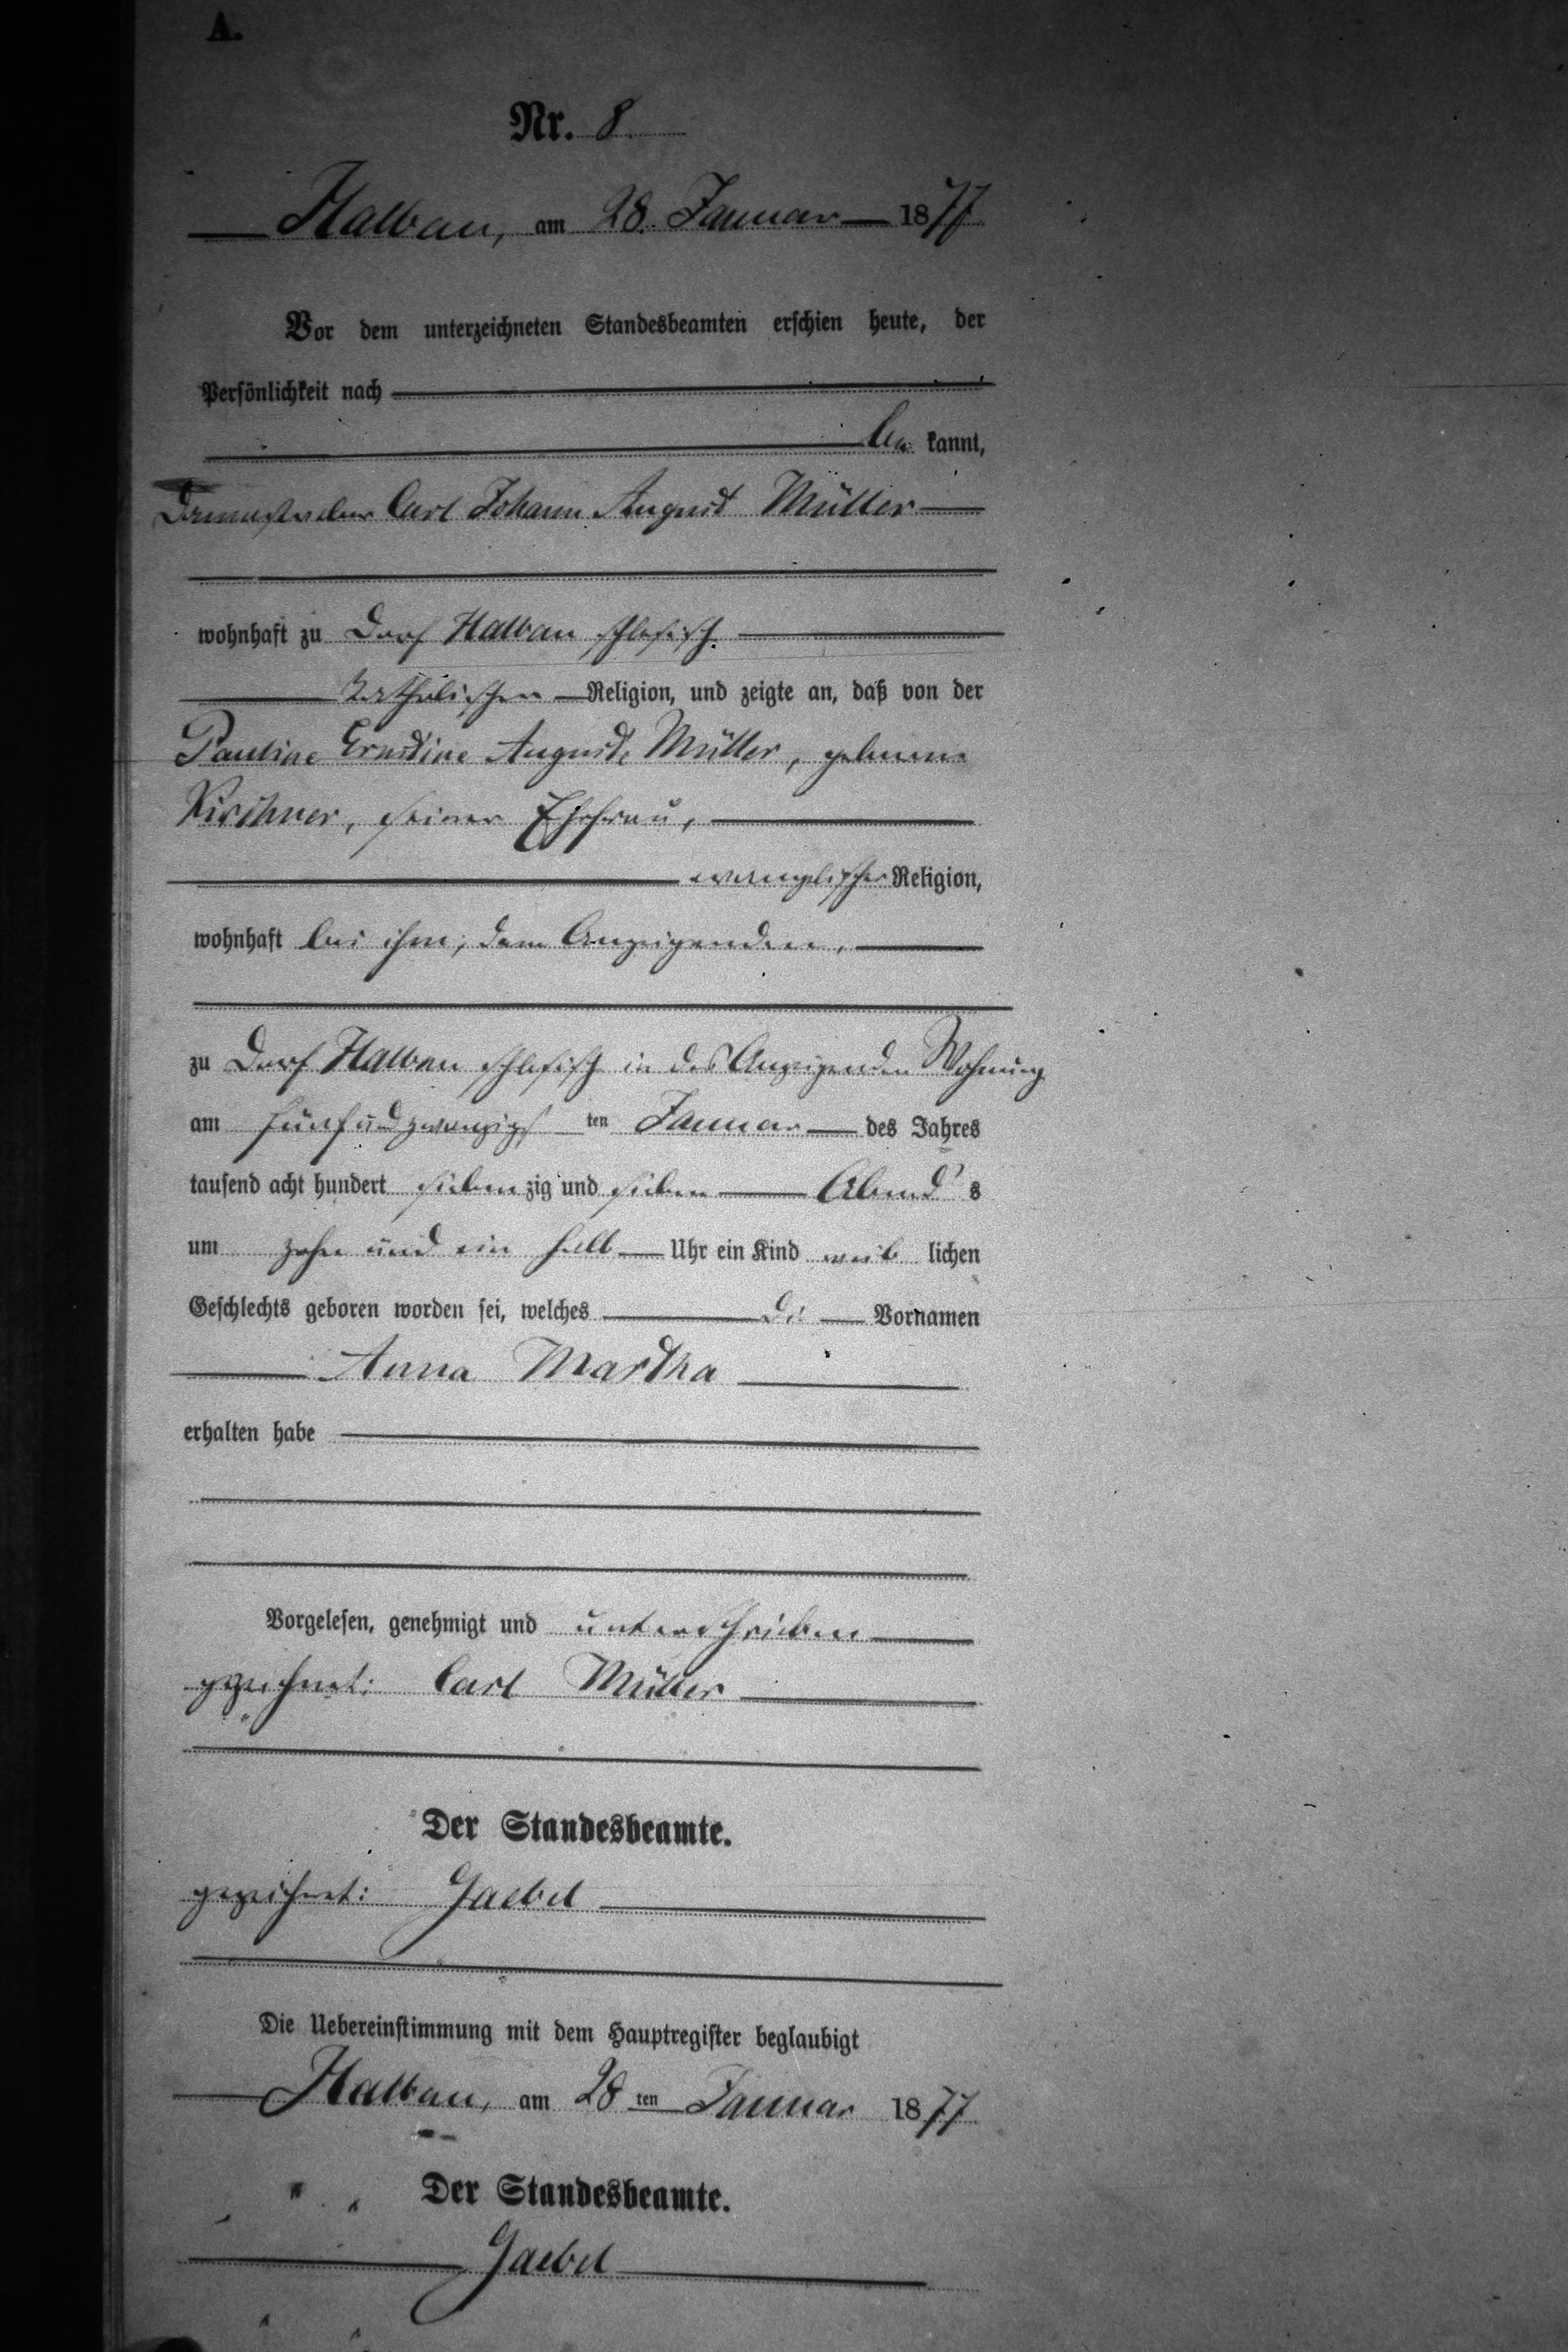 A.
Nr. 8.
Halbau, am 28. Januar 1877
Vor dem unterzeichneten Standesbeamten erschien heute, der
Persönlichkeit nach
be kannt,
Damastweber Carl Johann August Müller
wohnhaft zu Dorf Halbau schlesisch.
katholischen Religion, und zeigte an, daß von der
Pauline Ernstine Auguste Müller, geborene
Kirschner, seiner Ehefrau,
evangelischer Religion,
wohnhaft bei ihm, dem Anzeigenden,
zu Dorf Halbau schlesisch in des Anzeigenden Wohnung
am fünfundzwanzigs ten Januar des Jahres
tausend acht hundert sieben zig und sieben Abend s
um zehn und ein halb Uhr ein Kind weib lichen
Geschlechts geboren worden sei, welches die Vornamen
Anna Martha
erhalten habe
Vorgelesen, genehmigt und unterschrieben
gezeichnet: Carl Müller
Der Standesbeamte.
gezeichnet: Gaebel
Die Uebereinstimmung mit dem Hauptregister beglaubigt
Halbau, am 28 ten Januar 1877
Der Standesbeamte.
Gaebel